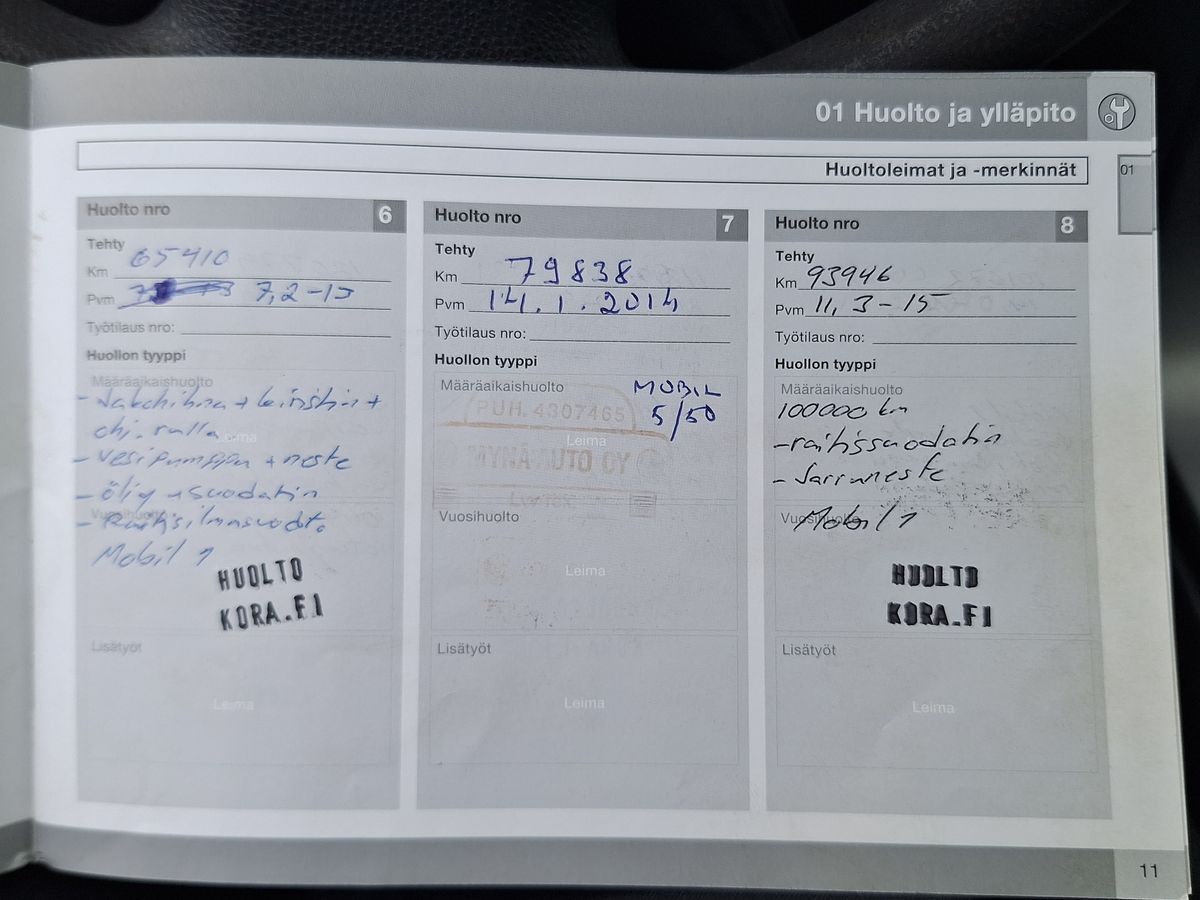 01 Huolto ja ylläpito
Huoltoleimat ja -merkinnät
01
Huolto nro 6
Tehty
Km 65410
Pvm 7,2-13
Työtilaus nro:
Huollon tyyppi
Määräaikaishuolto
- Jakohihna + kiristin +
ohj. rulla
Leima
- Vesipumppu + neste
- öljy + suodatin
Vuosihuolto
- Raitisilmasuodat.
Mobil 1
HUOLTO
KORA.FI
Lisätyöt
Leima
Huolto nro 7
Tehty
Km 79838
Pvm 14.1.2014
Työtilaus nro:
Huollon tyyppi
Määräaikaishuolto
MOBIL
5/50
PUH. 4307465
Leima
MYNÄ-AUTO OY
Vuosihuolto
Leima
Lisätyöt
Leima
Huolto nro 8
Tehty
Km 93946
Pvm 11, 3-15
Työtilaus nro:
Huollon tyyppi
Määräaikaishuolto
100000 km
- raitissuodatin
- Jarruneste
Vuosihuolto
Mobil 1
HUOLTO
KORA.FI
Lisätyöt
Leima
11